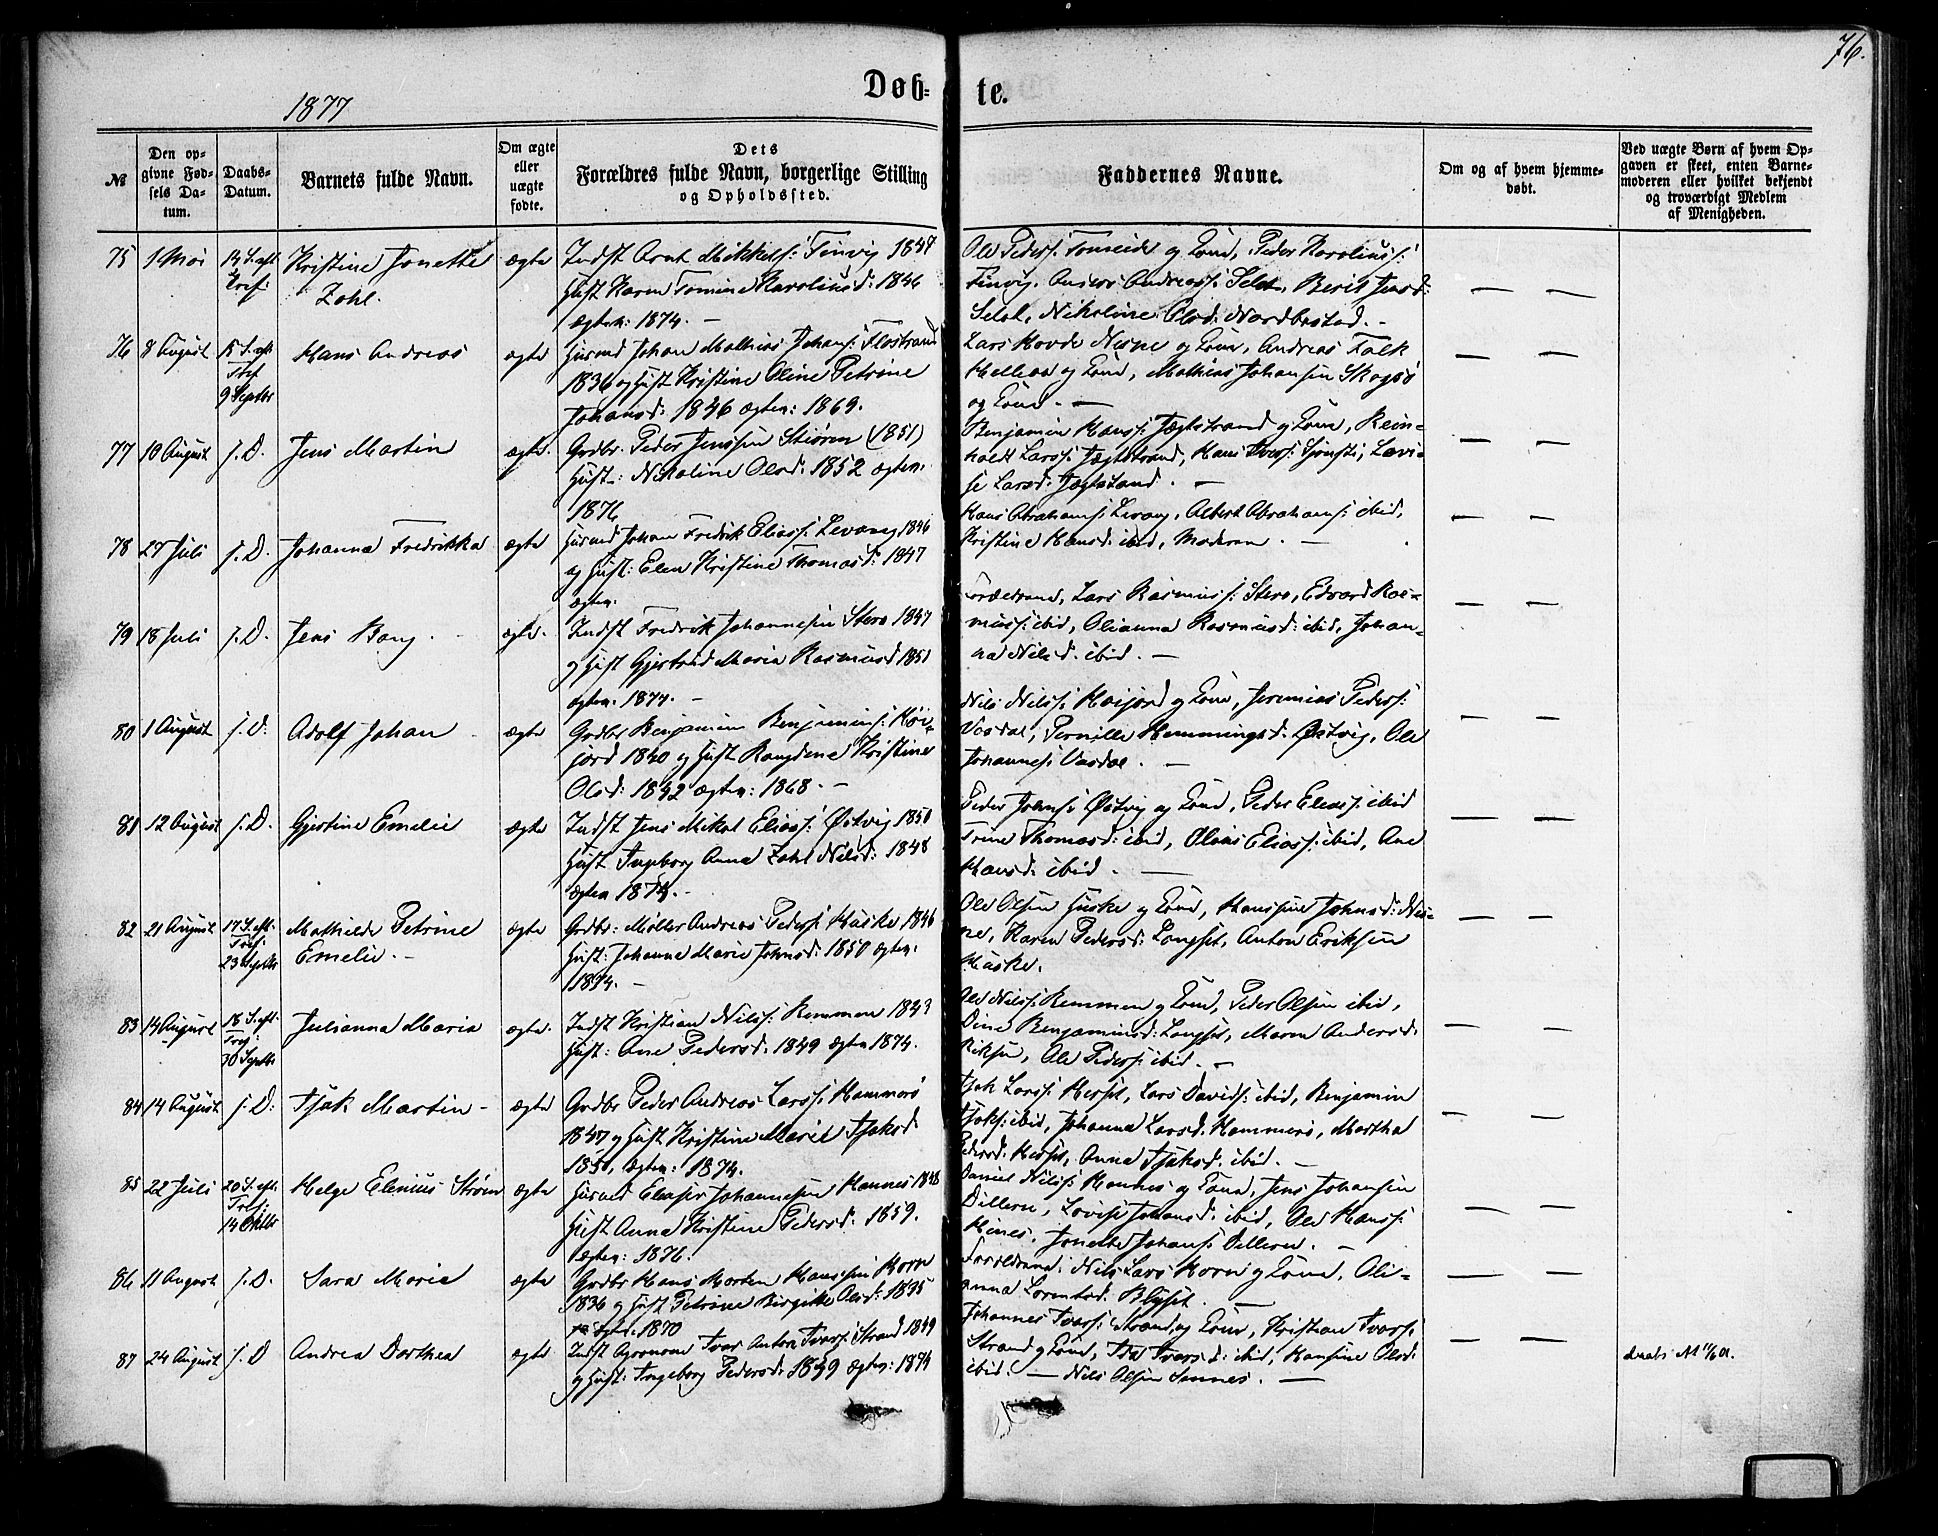 76.
1877
Døb=
te.
№
Den op-
givne Fød-
sels Da-
tum.
Daabs-
Datum.
Barnets fulde Navn.
Om ægte
eller
uægte
fødte.
Dets
Forældres fulde Navn, borgerlige Stilling
og Opholdssted.
Faddernes Navne.
Om og af hvem hjemme-
døbt.
Ved uægte Børn af hvem Op-
gaven er skeet, enten Barne-
moderen eller hvilket bekjendt
og troværdigt Medlem
af Menigheden.
75 1 Mai
Kristine Jonette
Zahl.
ægte
Indst Arnt Mikkels: Finvig 1847
Hust Karen Tomine Karoliusd: 1846
ægtev: 1874. —
Ole Peders: og Kone, Peder Karolius:
Finvig, Anders Andreas: Selst, Berit Jensd:
Selst, Nikoline Olsd: Nordbostad. —
76 8 August
9 Septbr
Hans Andreas
ægte
Huusmd Johan Mathias Johans: Flostrand
1836 og Hust Kristine Oline Petrine
Johansd: 1846 ægtev: 1869.
Lars Hovde Nesne og Kone, Andreas Falk
og Kone, Mathias Johansen Skogsø
og Kone. —
77 10 August
s. D.
Jens Martin
ægte.
Grdbr. Peder Jenssen Stiøren (1851)
Hust: Nikoline Olsd: 1852 ægtev:
1876
Benjamin Hans: Jægtstrand og Kone, Rein-
holt Lars: Jægtstrand, Hans Ivers: Lovi-
se Larsd: Jægtstrand. —
78 27 Juli
s. D.
Johanna Fredrikka
ægte
Huusmd Johan Fredrik Elias: Levang 1846
og Hust: Elen Kristine Thomasd: 1847
ægtev:
Hans Abrahams: Levang, Albert Abrahams: ibid,
Kristine Hansd: ibid, Moderen. —
79 18 Juli
s. D.
Jens Bang.
ægte.
Indst Fredrik Johannesen Stero 1847
og Hust Gjertrud Maria Rasmusd 1851
ægtev. 1874. —
Forældrene, Lars Rasmus: Stero, Edvard Ras-
mus: ibid, Olianna Rasmusd: ibid, Johan-
na Nilsd: ibid. —
80 1 August
s. D.
Adolf Johan
ægte
Grdbr Benjamin Benjamins: Høi-
jord 1840 og Hust Kristine
Olsd: 1842 ægtev: 1868. —
Nils Nils: Høijord og Kone, Jeremias Peders:
Vasdal, Pernille Hemmingsd: Østvig, Ole
Johannes: Vasdal. —
81 12 August
s. D.
Gjertine Emelie
ægte
Indst Jens Mikal Elias: Østvig 1850
Hust Ingeborg Anna Zahl Nilsd: 1848
ægtev 1874. —
Peder Johns: Østvig og Kone, Peder Elias: ibid
Trine Thomasd: ibid, Olaus Elias: ibid, Ane
Hansd: ibid. —
82 21 August
17 S. eft:
Tref:
23 Septbr
Mathilde Petrine
Emelie. —
ægte
Grdbr: Møller Andreas Peders: Huske 1846
Hust: Johanne Marie Johnsd: 1850 ægtev:
1874. —
Ole Olsen Huske og Kone, Hansine Johnsd: Nes-
ne, Karen Pedersd: Langset, Anton Eriksen
Huske.
83 14 August
18 S. eft:
Tref:
30 Septbr
Julianna Maria
ægte.
Indst Kristian Nils: Remmen 1843
Hust: Ane Pedersd: 1849 ægtev 1874.
Ole Nils: Remmen og Kone, Peder Olsen ibid,
Dina Benjaminsd: Langset, Maren Andersd:
Ole Peders: ibid. —
84 14 August
s. D.
Isak Martin —
ægte
Grdbr Peder Andreas Lars: Hammerø
1847 og Hust Kristine Marit Isaksd
1850, ægtev: 1874.
Isak Lars: Herset, Lars Davids: ibid, Benjamin
Isaks: ibid, Johanna Larsd: Hammerø, Martha
Pedersd: Herset, Anna Isaksd. ibid. —
85 22 Juli
20 S. eft:
Tref:
14 Oktbr
Helge Elenius Strøm
ægte
Huusmd Eleaser Johannesen Hannes 1848
Hust Anna Kristine Pedersd: 1859.
ægtev: 1876.
Daniel Nils: Hannes og Kone, Jens Johansen
Dillern, Lovise Johansd: ibid, Ole Hans:
Jonette Johans: Dillern. —
86 11 August
s. D.
Sara Maria
ægte
Grdbr Hans Morten Hanssen Horn
1836 og Hust Petrine Birgitte Olsd: 1835
ægtev. 1870
Forældrene, Nils Lars Horn og Kone, Oli-
anna Lorentsd: —
87 24 August
s. D
Andrea Dorthea
ægte
Indst Agronom Ivar Anton Ivars: Strand 1849
og Hust: Ingeborg Pedersd: 1849 ægtev: 1874
Johannes Ivars: Strand og Kone, Kristian Ivars:
Strand og Kone, Ida Ivarsd: ibid, Hansine Olsd:
ibid. — Nils Olsen Sannes. —